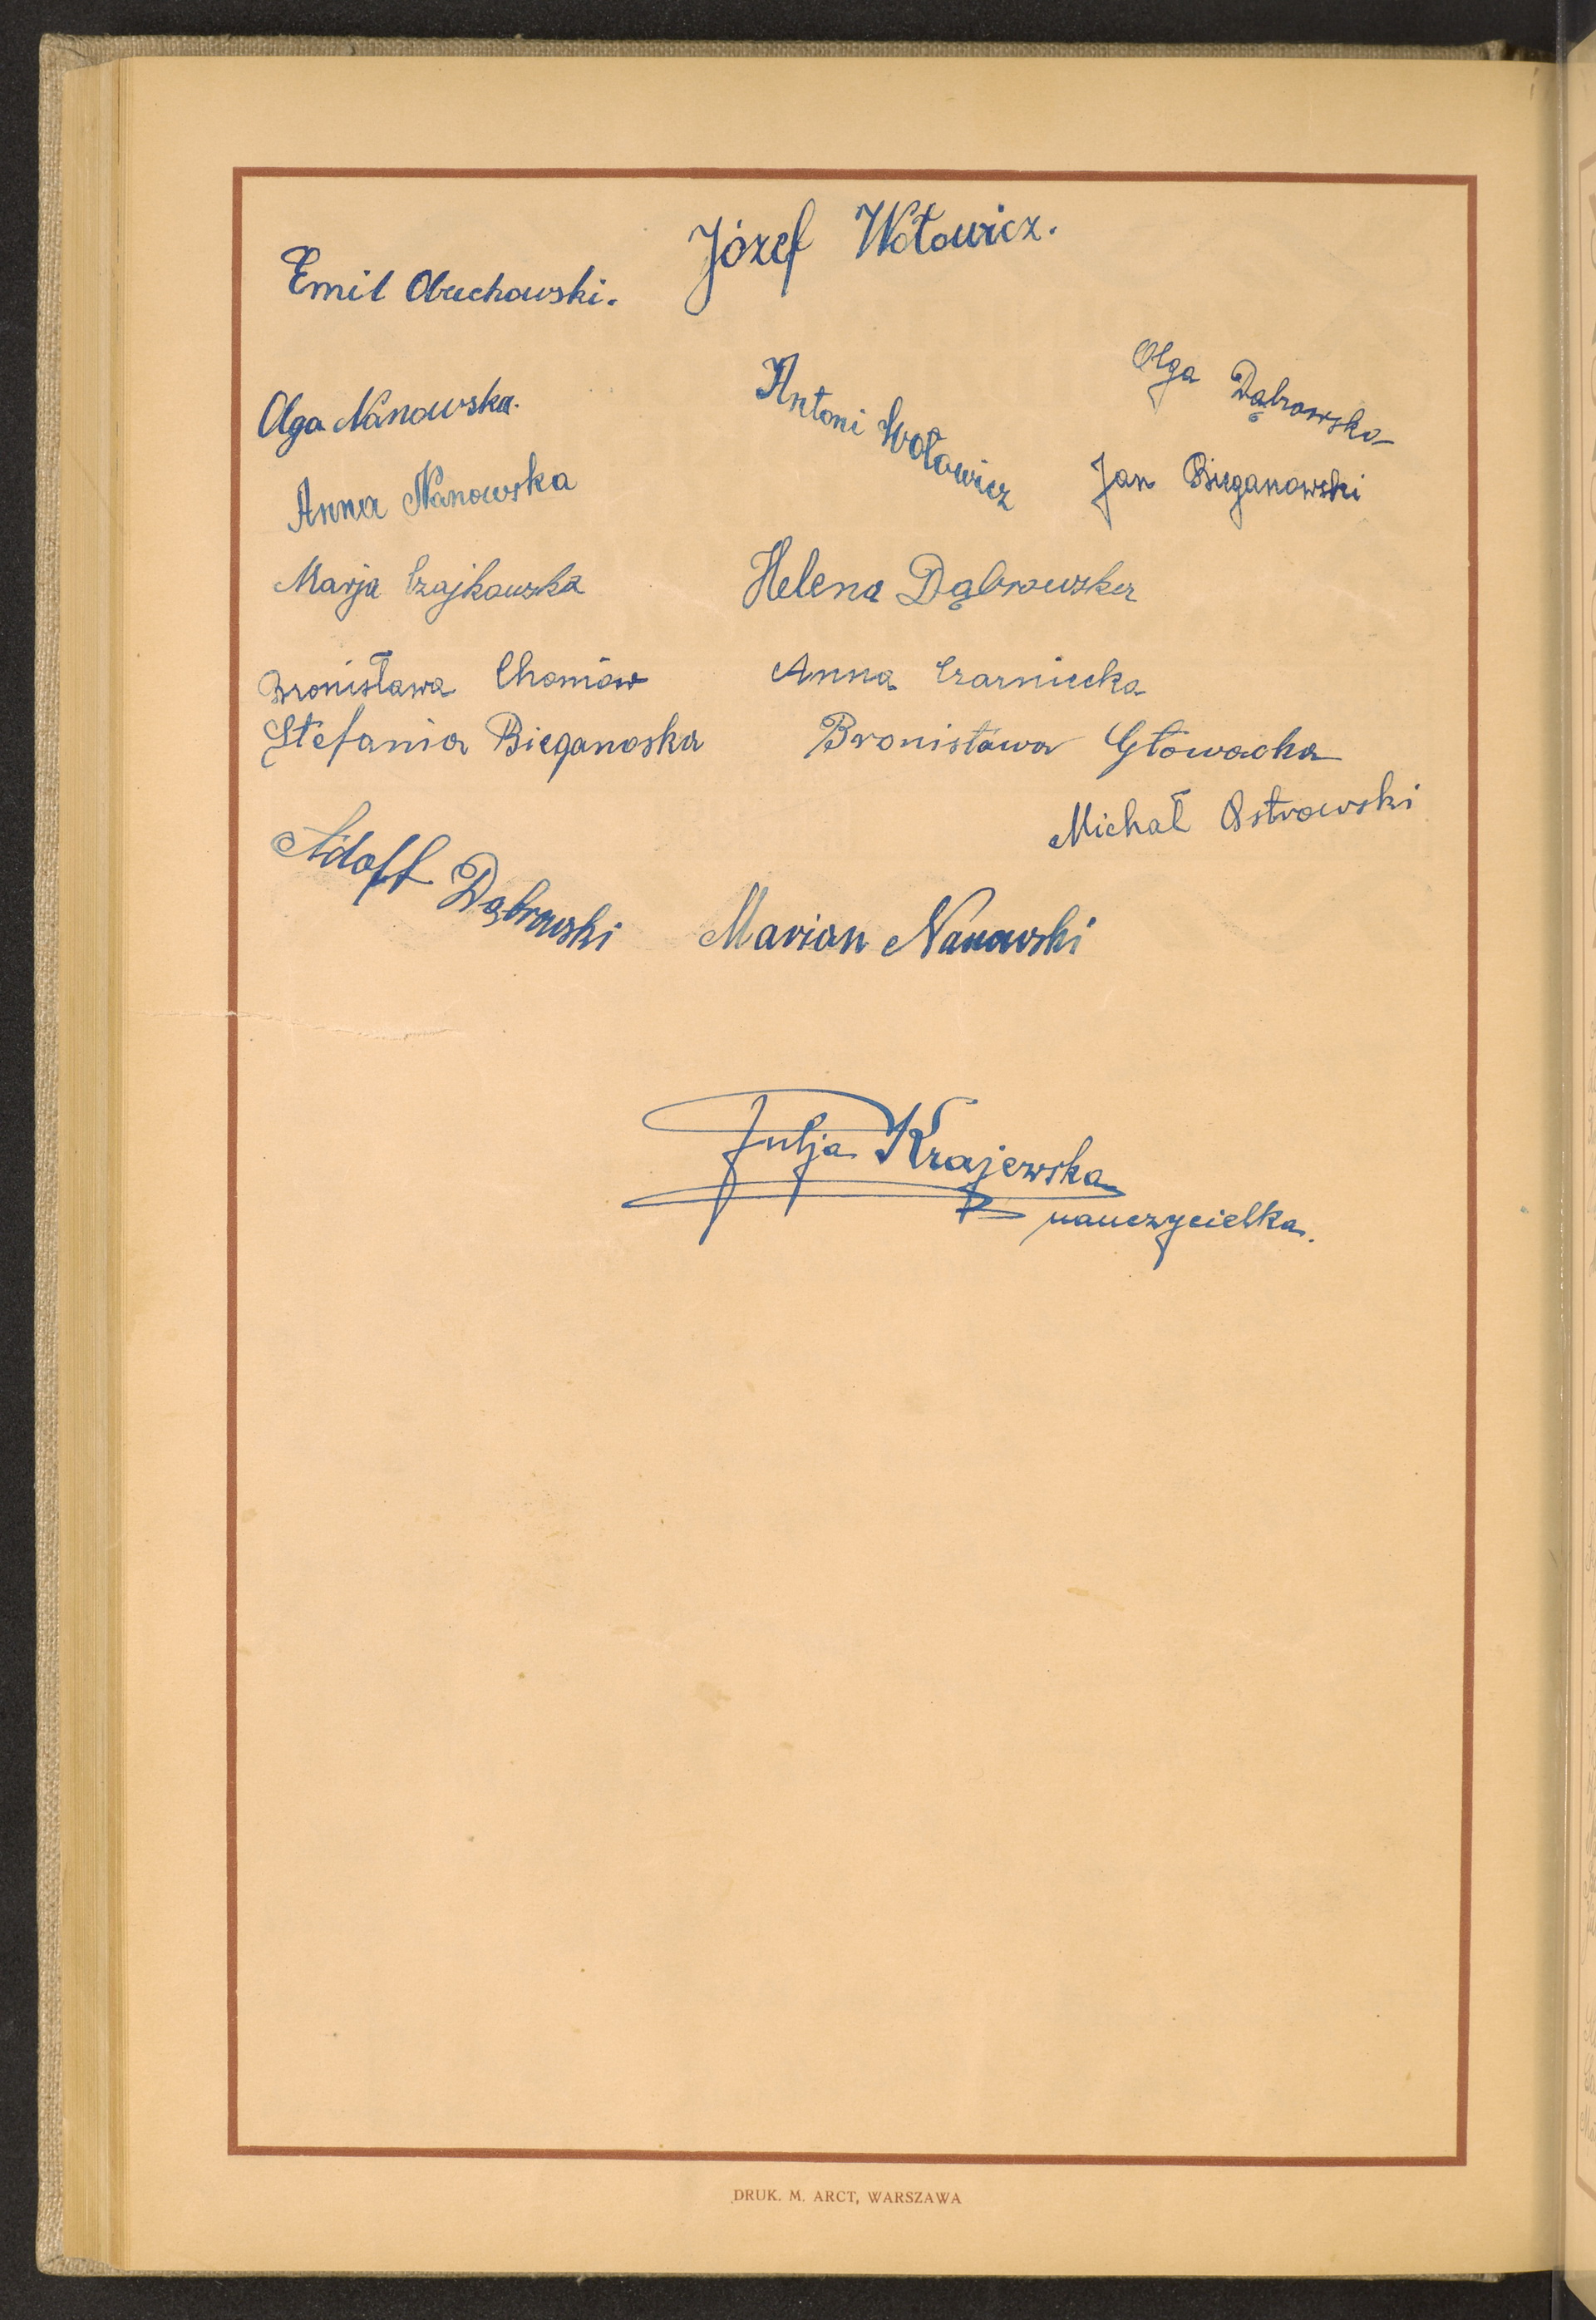 Józef Wołowicz.
Emil Obuchowski.
Olga Dąbrowska
Olga Nanowska.
Antoni Wołowicz
Jan Bieganowski
Anna Nanowska
Marja Czajkowska
Helena Dąbrowska
Bronisława Chomów
Anna Czarniecka
Stefania Bieganoska
Bronisława Głowacka
Michał Ostrowski
Adolf Dąbrowski
Marian Nanowski
Julja Krajewska
nauczycielka.
DRUK. M. ARCT, WARSZAWA